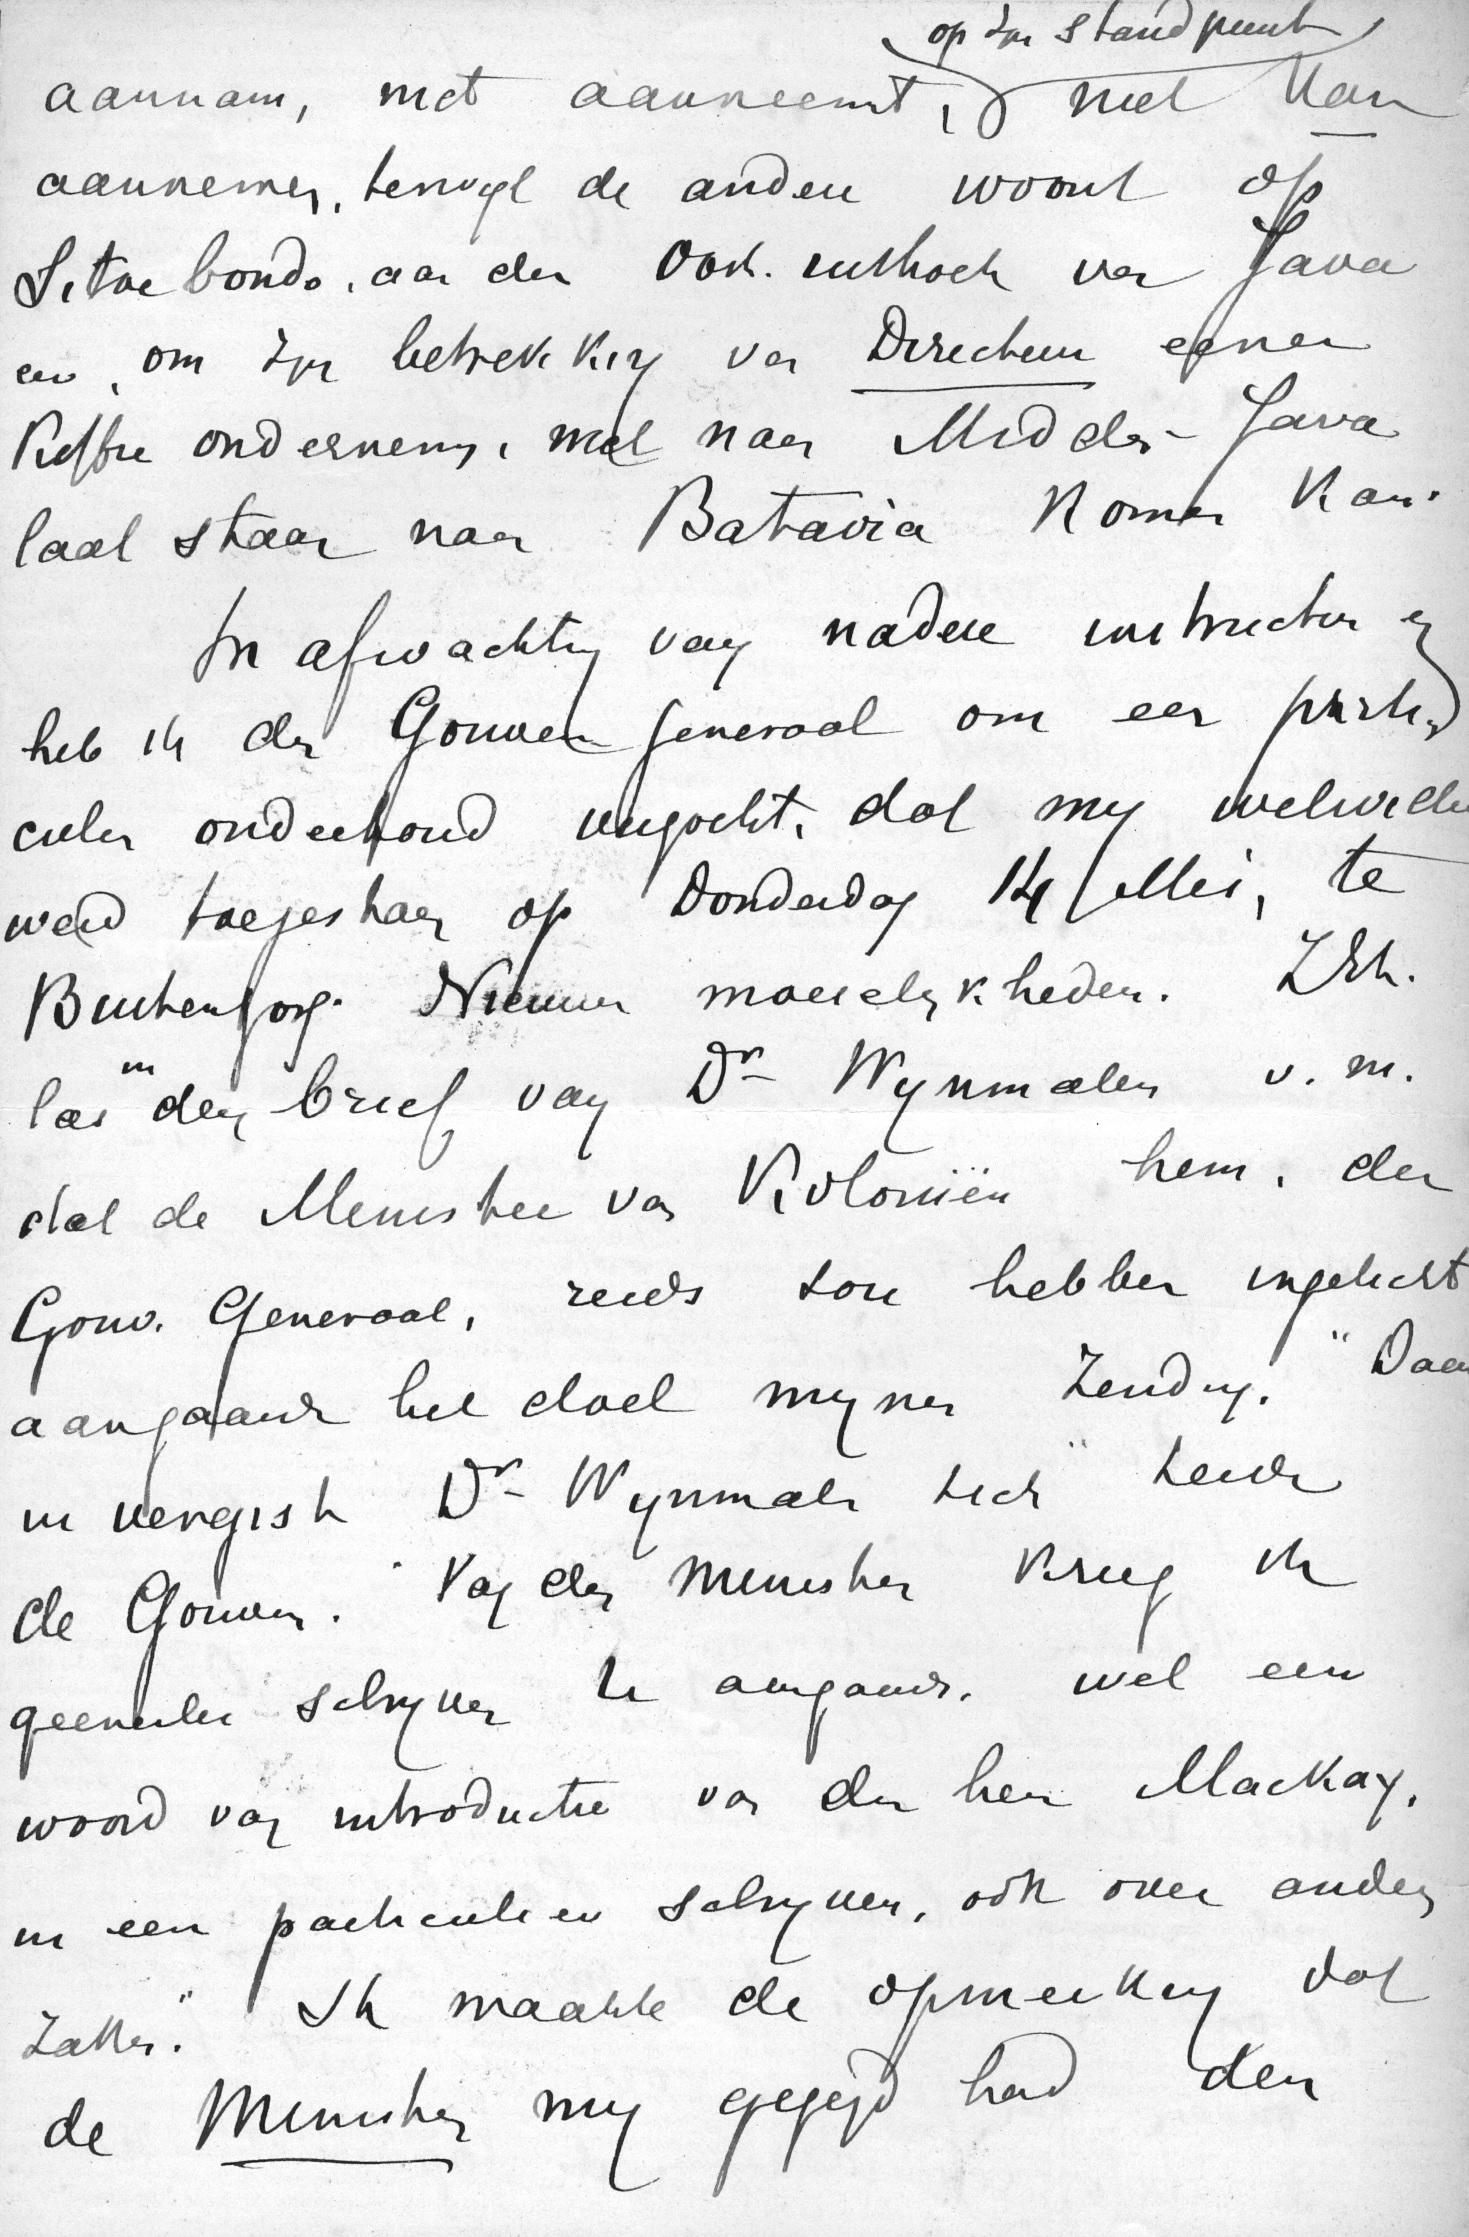 op zyn standpunt
aannam, niet aanneemt, niet kan
aannemen, terwyl de andere woont op
Sitoebondo, aan den Oost. uithoek van Java
en, om zyn betrekking van Directeur eener
Koffie onderneming, niet naar Midden-Java
laat staan naar Batavia komen kan.
In afwachting van nadere instructien
heb ik den Gouver Generaal om een parti-
culier onderhoud verzocht, dat my welwillend
werd toegestaan op Donderdag 14 Mei, te
Buitenzorg. Nieuwe moeielykheden. ZEx.
las in den brief van Dr Wynmalen v. m.
dat de Minister van Koloniën hem, den
Gouv. Generaal, reeds zou hebben ingelicht
aangaande het doel myner zending. "Daar
in vergist Dr Wynmalen zich" zeide
de Gouver. "Van den Minister kreeg ik
geenerlei schryven te aangaande. wel een
woord van introductie van den heer Mackay,
in een particulier schryven, ook over andere
zaken." Ik maakte de opmerking dat
de Minister my gezegd had den